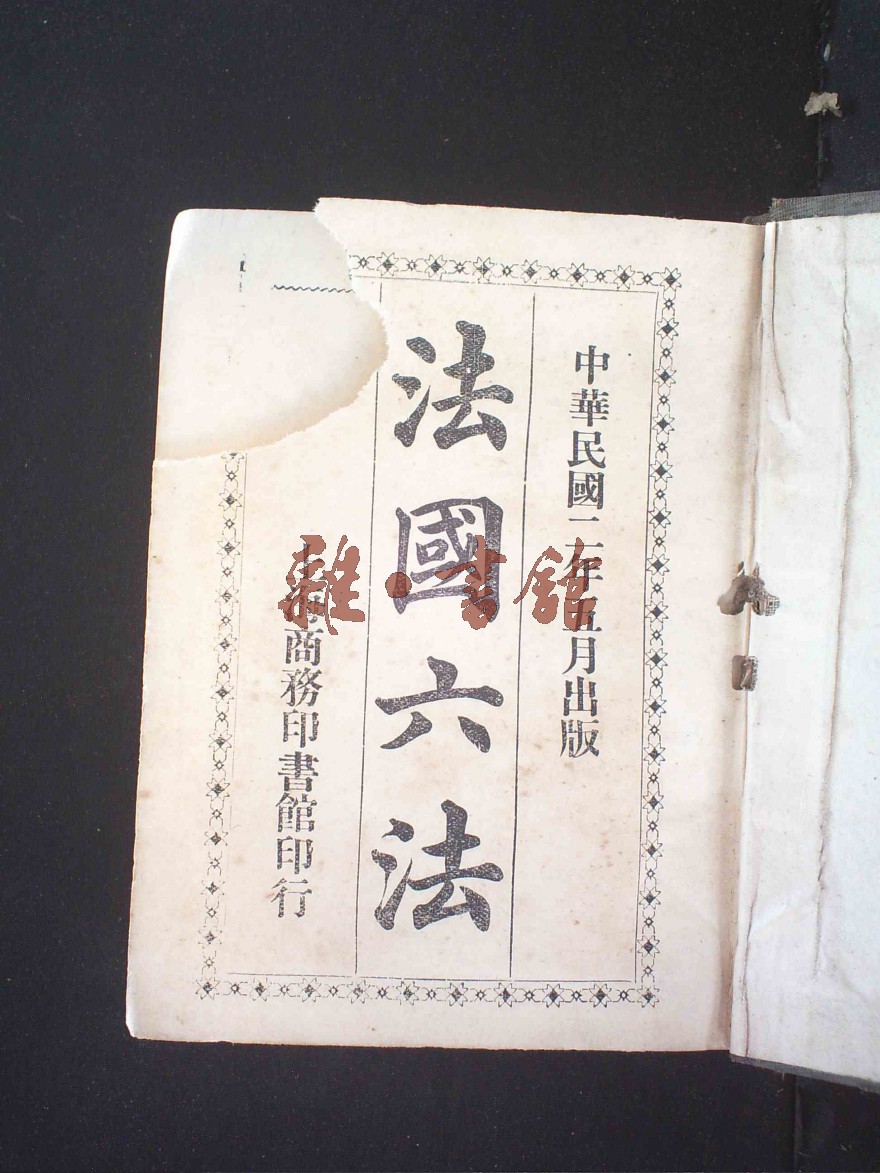 中華民國二年五月出版
法國六法
上海商務印書館印行
雜·書館